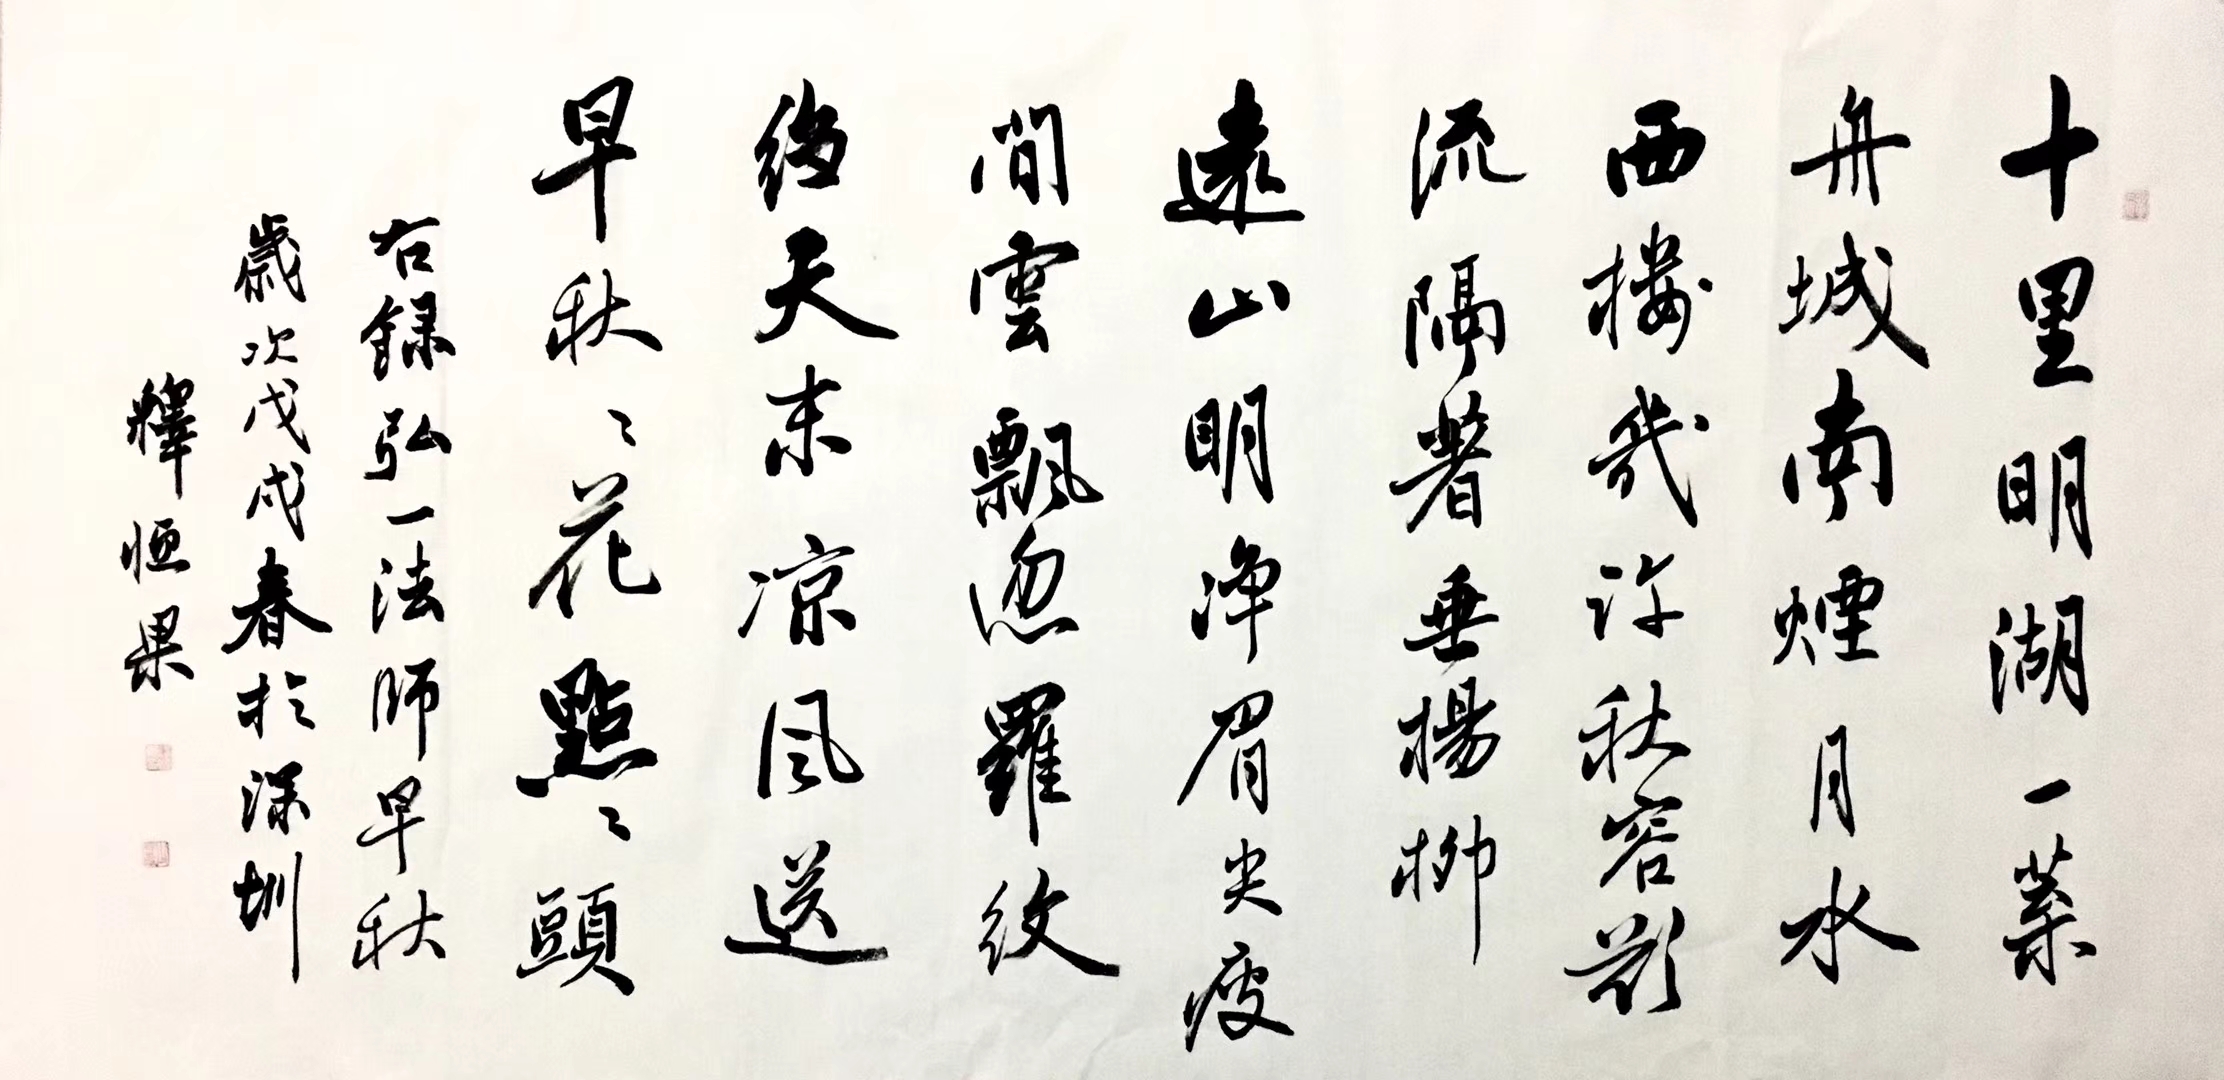 十里明湖一葉
舟城南煙月水
西樓幾許秋容欲
流隔著垂楊柳
遠山明淨眉尖瘦
閒雲飄忽羅紋
縐天末凉风送
早秋〻花點〻頭
右録弘一法師早秋
歲次戊戌春於深圳
釋恒果